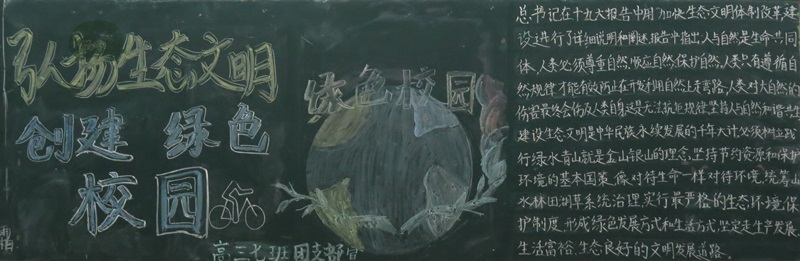 弘扬生态文明
创建 绿色
校园
高三七班团支部宣
绿色校园
总书记在十九大报告中用"加快生态文明体制改革,建
设进行了详细说明和阐述,报告中指出,人与自然是生命共同
体,人类必须尊重自然,顺应自然,保护自然,人类只有遵循自
然规律才能有效防止在开发利用自然上走弯路,人类对大自然的
伤害最终会伤及人类自身,这是无法抗拒规律,坚持人与自然和谐共生
建设生态文明是中华民族永续发展的千年大计,必须树立践
行绿水青山就是金山银山的理念,坚持节约资源和保护
环境的基本国策,像对待生命一样对待环境,统筹山
水林田湖草系统治理,实行最严格的生态环境保
护制度,形成绿色发展方式和生活方式,坚定走生产发展,
生活富裕、生态良好的文明发展道路。